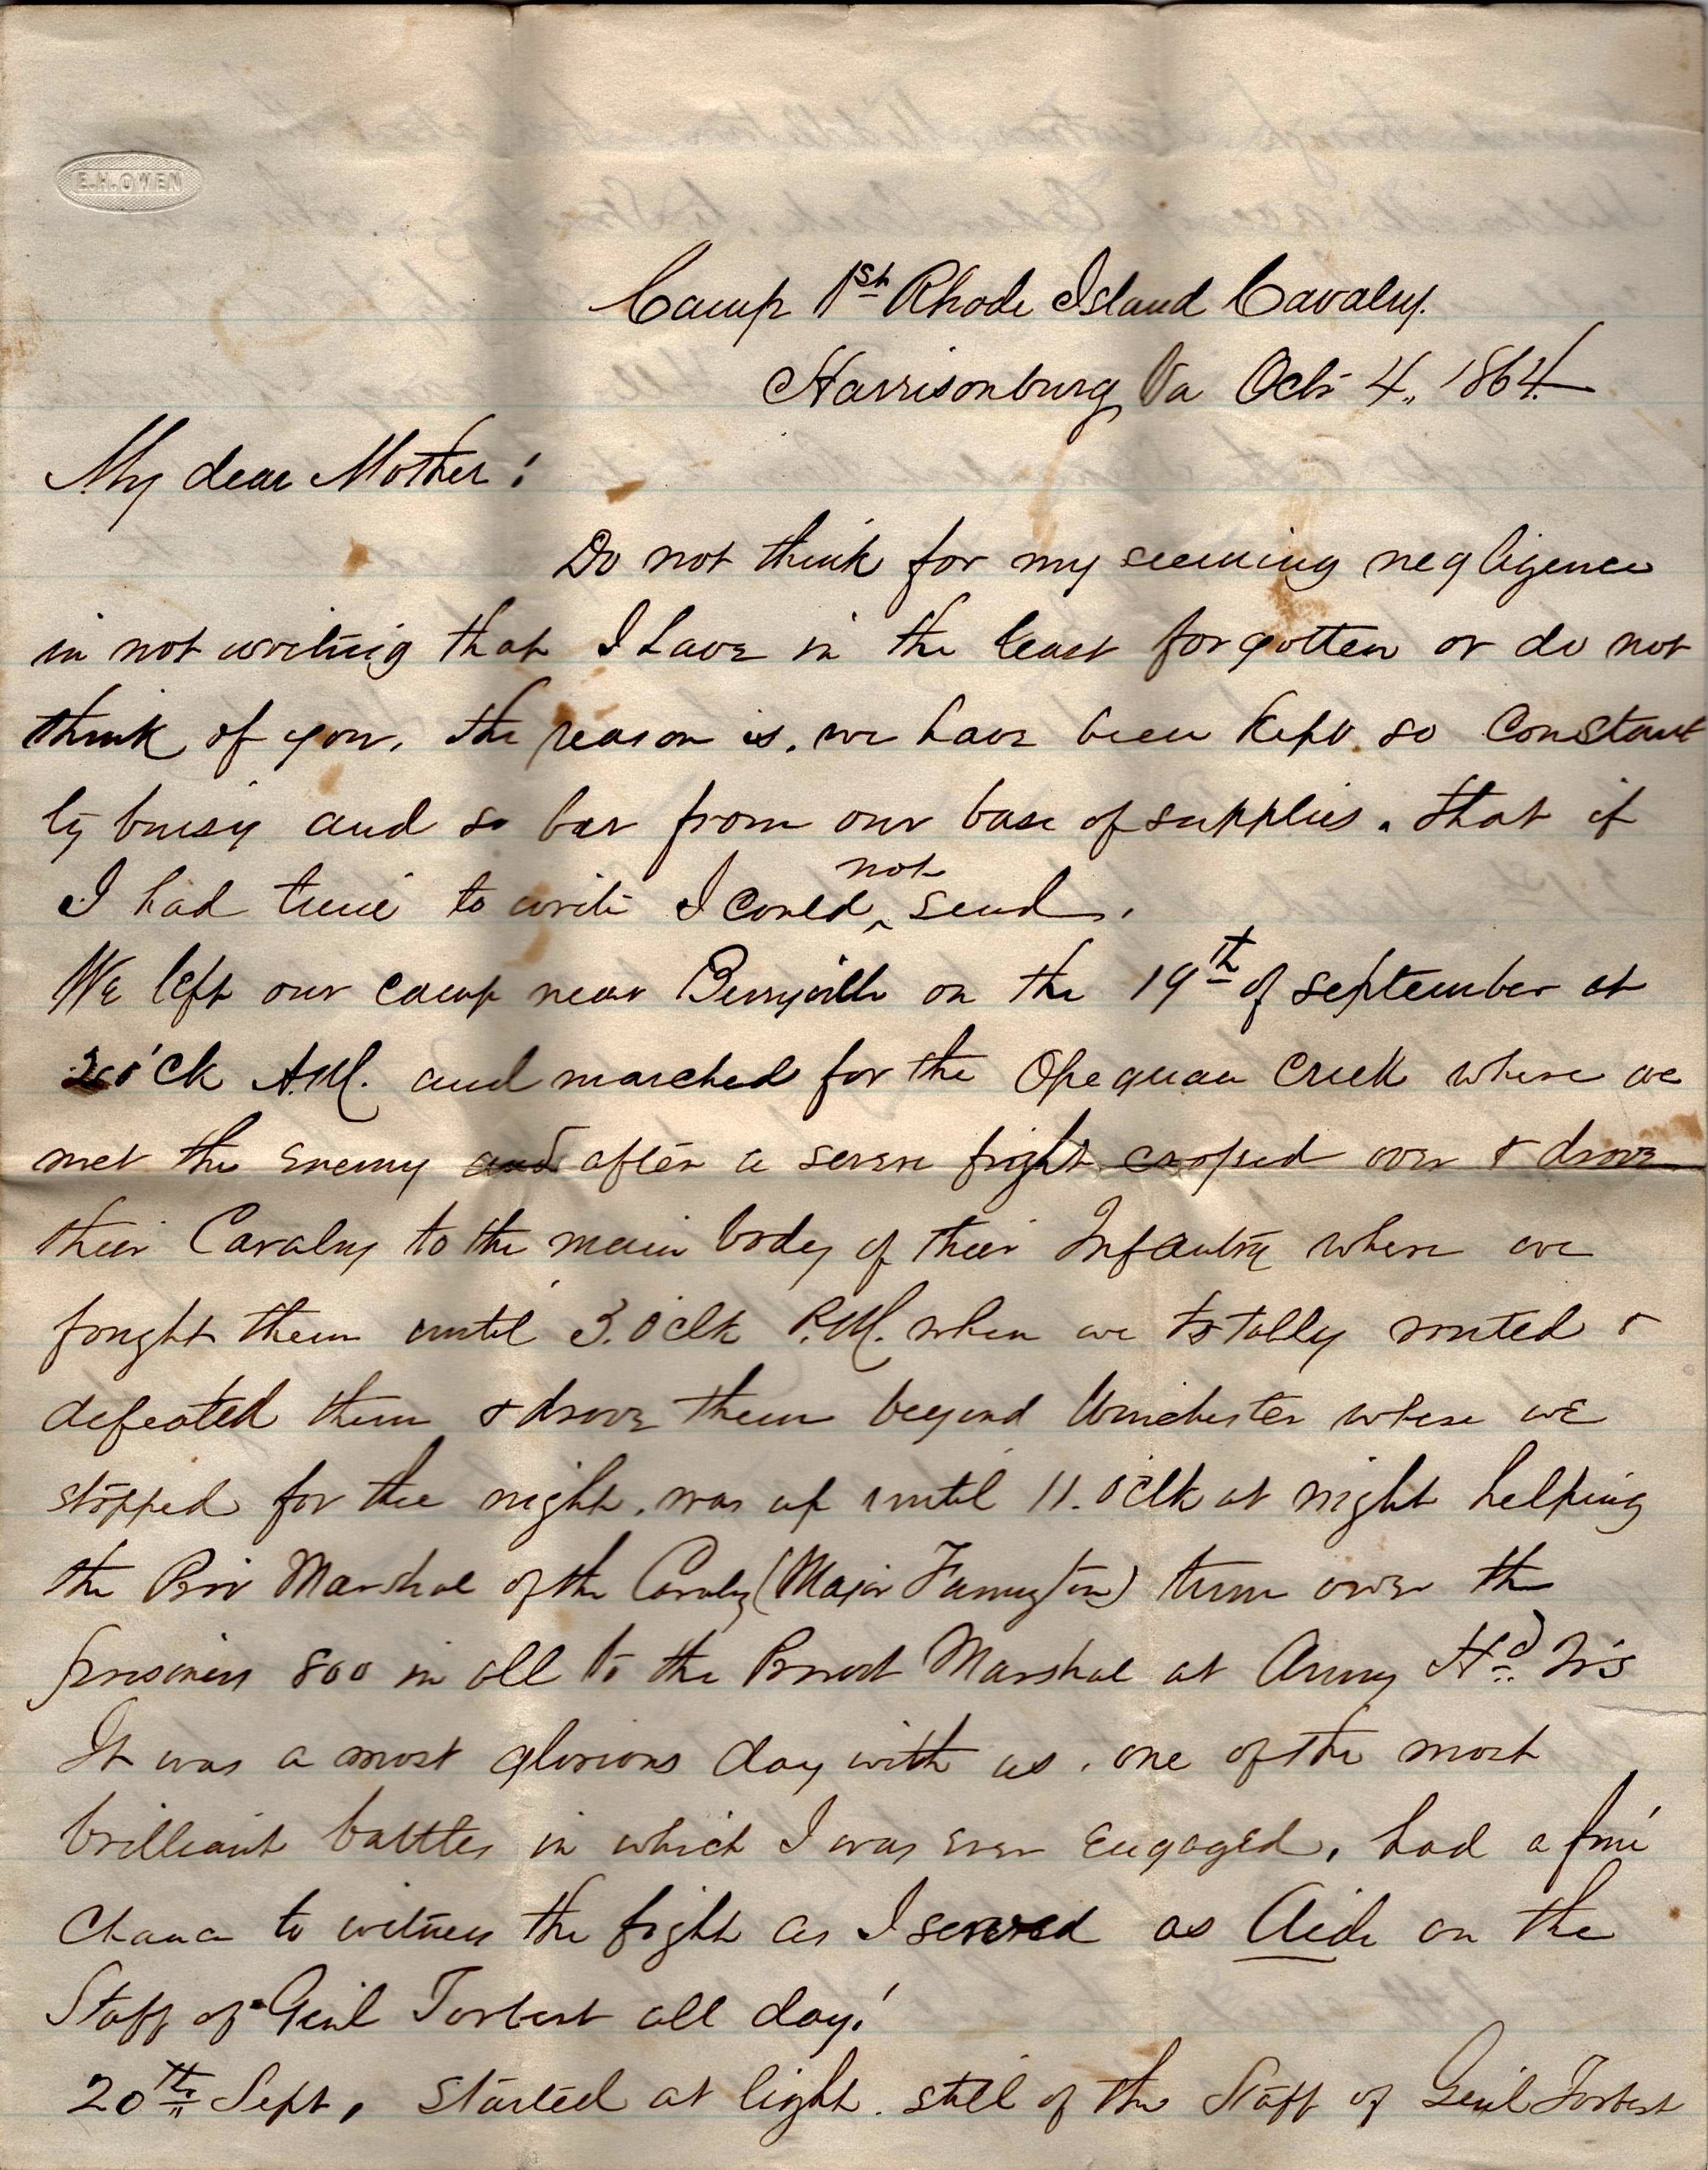 E.H. OWEN
Camp 1st Rhode Island Cavalry.
Harrisonburg Va Oct 4, 1864
My dear Mother:
Do not think for my seeming negligence
in not writing that I have in the least forgotten or do not
think of you, the reason is, we have been kept so constant
ly busy and so far from our base of supplies, that if
not
I had time to write I could ^ send.
We left our camp near Berryville on the 19th of September at
2 o'ck A.M. and marched for the Opequan Creek where we
met the enemy and after a severe fight crossed over & drove
their Cavalry to the main body of their Infantry where we
fought them until 3. oclk P.M. when we totally routed &
defeated them & drove them beyond Winchester where we
stopped for the night. was up until 11. oclk at night helping
the Prov Marshal of the Cavalry (Major Farrington) turn over the
prisoners 800 in all to the Provost Marshal at Army Hd. Qrs
It was a most glorious day with us, one of the most
brilliant battles in which I was ever engaged, had a fine
chance to witness the fight as I served as Aide on the
Staff of Genl Torbert all day!
20th Sept, started at light. still of the Staff of Genl Torbert